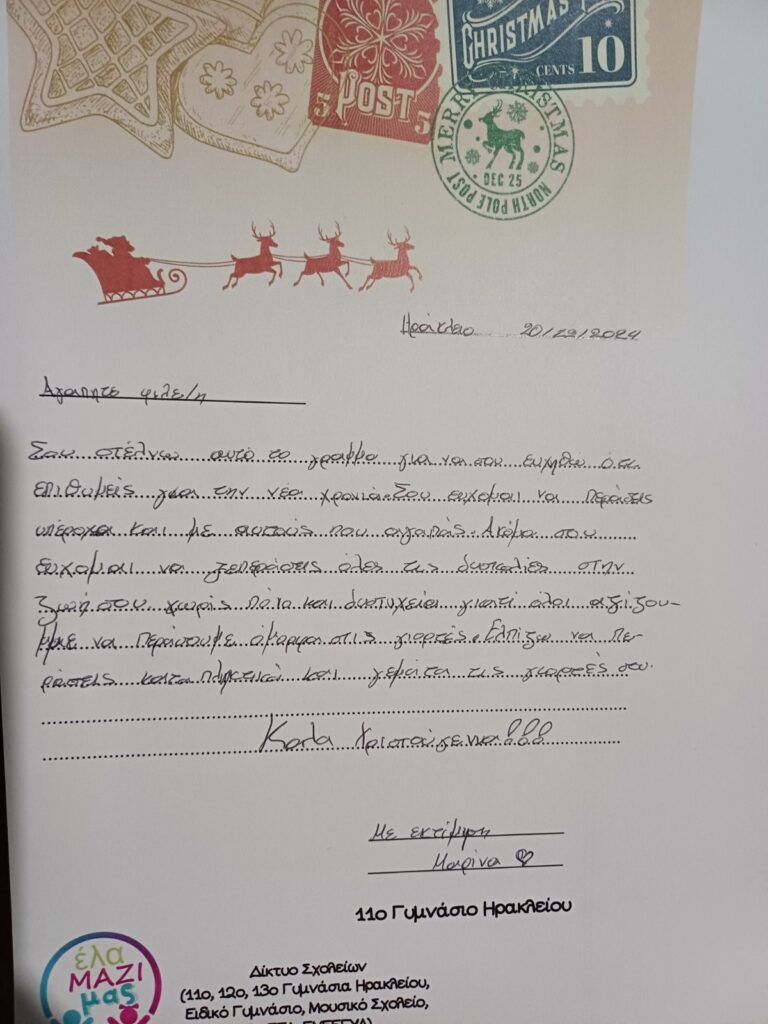 CHRISTMAS
CENTS 10
5 POST 5
MERRY CHRISTMAS
DEC 25
NORTH POLE POST
Ηράκλειο 20/12/2024
Αγαπητε φιλε/η
Σου στέλνω αυτό το γράμμα για να σου ευχηθώ ό,τι
επιθυμείς για την νέα χρονιά. Σου εύχομαι να περάσεις
υπέροχα και με αυτούς που αγαπάς. Ακόμα σου
εύχομαι να ξεπεράσεις όλες τις δυσκολίες στην
ζωή σου χωρίς και δυστυχεία γιατί όλοι αξίζου-
με να περάσουμε όμορφα στις γιορτές. Ελπίζω να πε-
ράσεις και γεμάτα τις γιορτές σου.
Καλα Χριστούγεννα!!!
Με εκτίμηση
Μαρίνα
11ο Γυμνάσιο Ηρακλείου
έλα
ΜΑΖΙ
μας
Δίκτυο Σχολείων
(11ο, 12ο, 13ο Γυμνάσια Ηρακλείου,
Ειδικό Γυμνάσιο, Μουσικό Σχολείο,